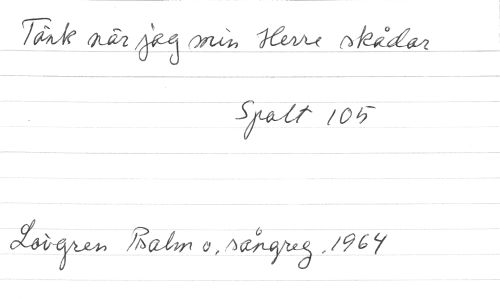 Tänk när jag min Herre skådar
Spalt 105
Lövgren Psalm o. sångreg. 1964